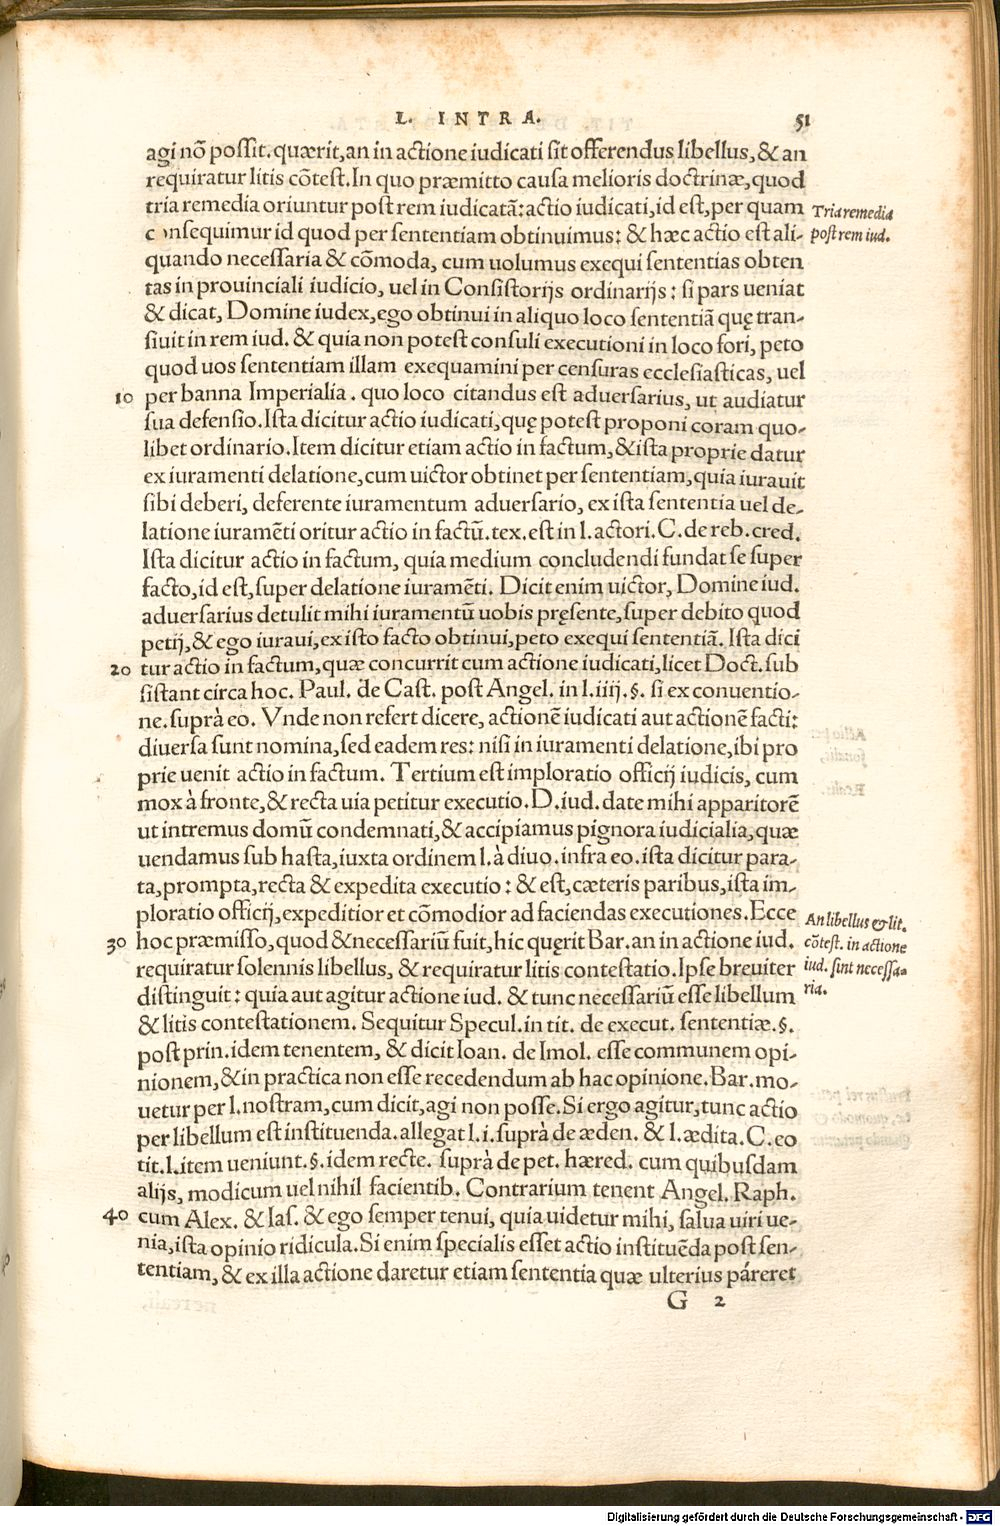 L. INTRA. 51
agi nõ possit. quærit, an in actione iudicati sit offerendus libellus, & an
requiratur litis cõtest. In quo præmitto causa melioris doctrinæ, quod
tria remedia oriuntur post rem iudicatã: actio iudicati, id est, per quam
Tria remedia
c nsequimur id quod per sententiam obtinuimus: & hæc actio est ali-
post rem iud.
quando necessaria & cõmoda, cum uolumus exequi sententias obten
tas in prouinciali iudicio, uel in Consistorijs ordinarijs: si pars ueniat
& dicat, Domine iudex, ego obtinui in aliquo loco sententiã quę tran-
siuit in rem iud. & quia non potest consuli executioni in loco fori, peto
quod uos sententiam illam exequamini per censuras ecclesiasticas, uel
10 per banna Imperialia. quo loco citandus est aduersarius, ut audiatur
sua defensio. Ista dicitur actio iudicati, quę potest proponi coram quo-
libet ordinario. Item dicitur etiam actio in factum, & ista proprie datur
ex iuramenti delatione, cum uictor obtinet per sententiam, quia iurauit
sibi deberi, deferente iuramentum aduersario, ex ista sententia uel de-
latione iuramẽti oritur actio in factũ. tex. est in l. actori. C. de reb. cred.
Ista dicitur actio in factum, quia medium concludendi fundat se super
facto, id est, super delatione iuramẽti. Dicit enim uictor, Domine iud.
aduersarius detulit mihi iuramentũ uobis pręsente, super debito quod
petij, & ego iuraui, ex isto facto obtinui, peto exequi sententiã. Ista dici
20 tur actio in factum, quæ concurrit cum actione iudicati, licet Doct. sub
sistant circa hoc. Paul. de Cast. post Angel. in l. iiij. §. si ex conuentio-
ne. suprà eo. Vnde non refert dicere, actionẽ iudicati aut actionẽ facti:
diuersa sunt nomina, sed eadem res: nisi in iuramenti delatione, ibi pro
prie uenit actio in factum. Tertium est imploratio officij iudicis, cum
mox à fronte, & recta uia petitur executio. D. iud. date mihi apparitorẽ
ut intremus domũ condemnati, & accipiamus pignora iudicialia, quæ
uendamus sub hasta, iuxta ordinem l. à diuo. infra eo. ista dicitur para-
ta, prompta, recta & expedita executio: & est, cæteris paribus, ista im-
ploratio officij, expeditior et cõmodior ad faciendas executiones. Ecce
An libellus & lit.
30 hoc præmisso, quod & necessariũ fuit, hic quęrit Bar. an in actione iud.
cõtest. in actione
requiratur solennis libellus, & requiratur litis contestatio. Ipse breuiter
iud. sint necessa-
distinguit: quia aut agitur actione iud. & tunc necessariũ esse libellum
ria.
& litis contestationem. Sequitur Specul. in tit. de execut. sententiæ. §.
post prin. idem tenentem, & dicit Ioan. de Imol. esse communem opi-
nionem, & in practica non esse recedendum ab hac opinione. Bar. mo-
uetur per l. nostram, cum dicit, agi non posse. Si ergo agitur, tunc actio
per libellum est instituenda. allegat l. i. suprà de æden. & l. ædita. C. eo
tit. l. item ueniunt. §. idem recte. suprà de pet. hæred. cum quibusdam
alijs, modicum uel nihil facientib. Contrarium tenent Angel. Raph.
40 cum Alex. & Ias. & ego semper tenui, quia uidetur mihi, salua uiri ue-
nia, ista opinio ridicula. Si enim specialis esset actio instituẽda post sen-
tentiam, & ex illa actione daretur etiam sententia quæ ulterius páreret
G 2
Digitalisierung gefördert durch die Deutsche Forschungsgemeinschaft - DFG